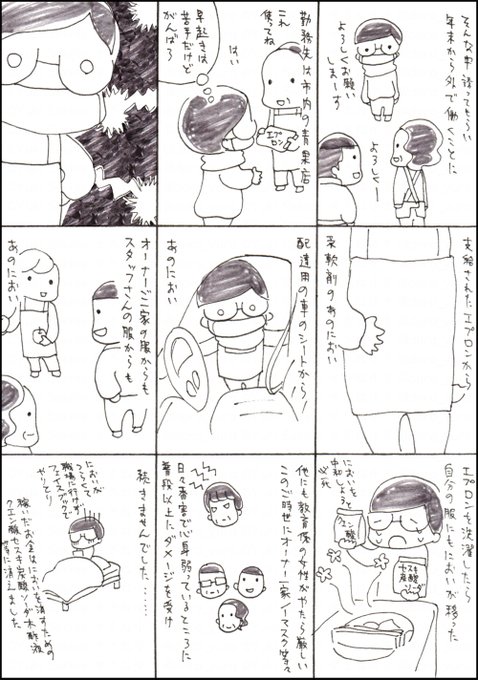 そんな中 誘ってもらい
年末から外で働くことに
よろしくお願い
しまーす
よろしくー
勤務先は市内の青果店
これ
使ってね
エプロン
はい
早起きは
苦手だけど
がんばろ
支給されたエプロンから
柔軟剤のあのにおい
配達用の車のシートから
あのにおい
オーナーご一家の服からも
スタッフさんの服からも
あのにおい
エプロンを洗濯したら
自分の服にもにおいが移った
においを
中和しようと
必死
クエン酸
セスキ
炭酸ソーダ
他にも教育係の女性がやたら厳しい
このご時世にオーナー一家ノーマスク等々
日々香害で心身弱っているところに
普段以上にダメージを受け
続きませんでした……
においが
つらくて
職場に行けず
フェイスブックで
やりとり
稼いだお金はにおいを消すための
クエン酸セスキ炭酸ソーダ木酢液
等に消えました